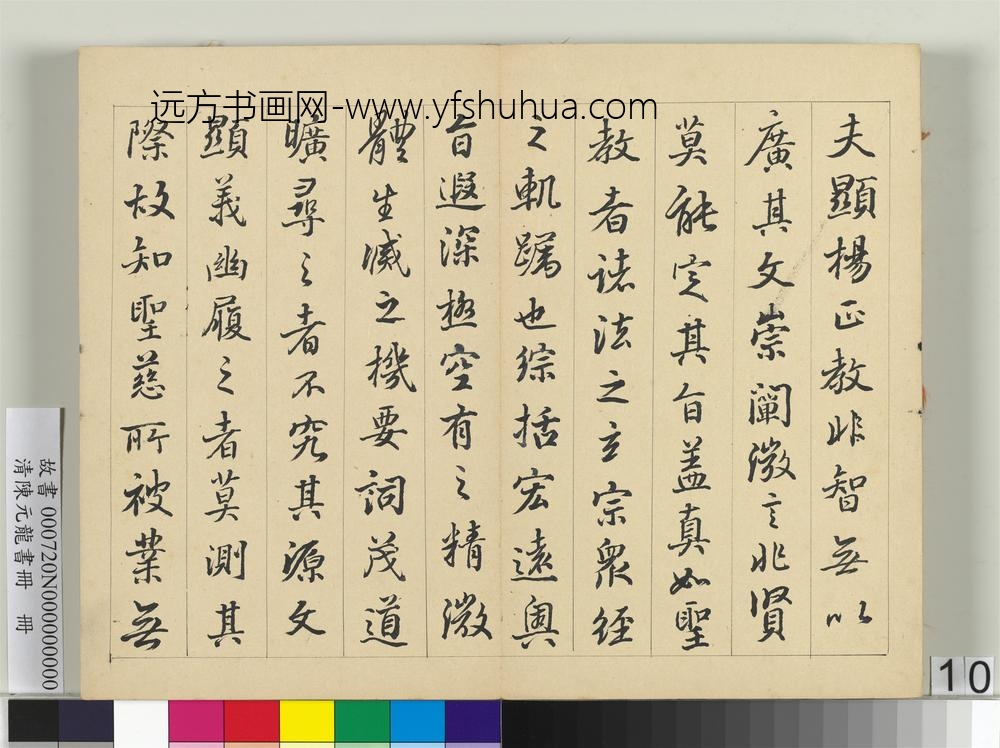 远方书画网-www.yfshuhua.com
夫顯楊正教非智無以
廣其文崇闡微言非賢
莫能定其旨盖真如聖
教者諸法之玄宗衆經
之軌躅也綜括宏遠奧
旨遐深極空有之精微
體生滅之機要詞茂道
曠尋之者不究其源文
顯義幽履之者莫測其
際故知聖慈所被業無
故書 000720N000000000
清陳元龍書冊 冊
10